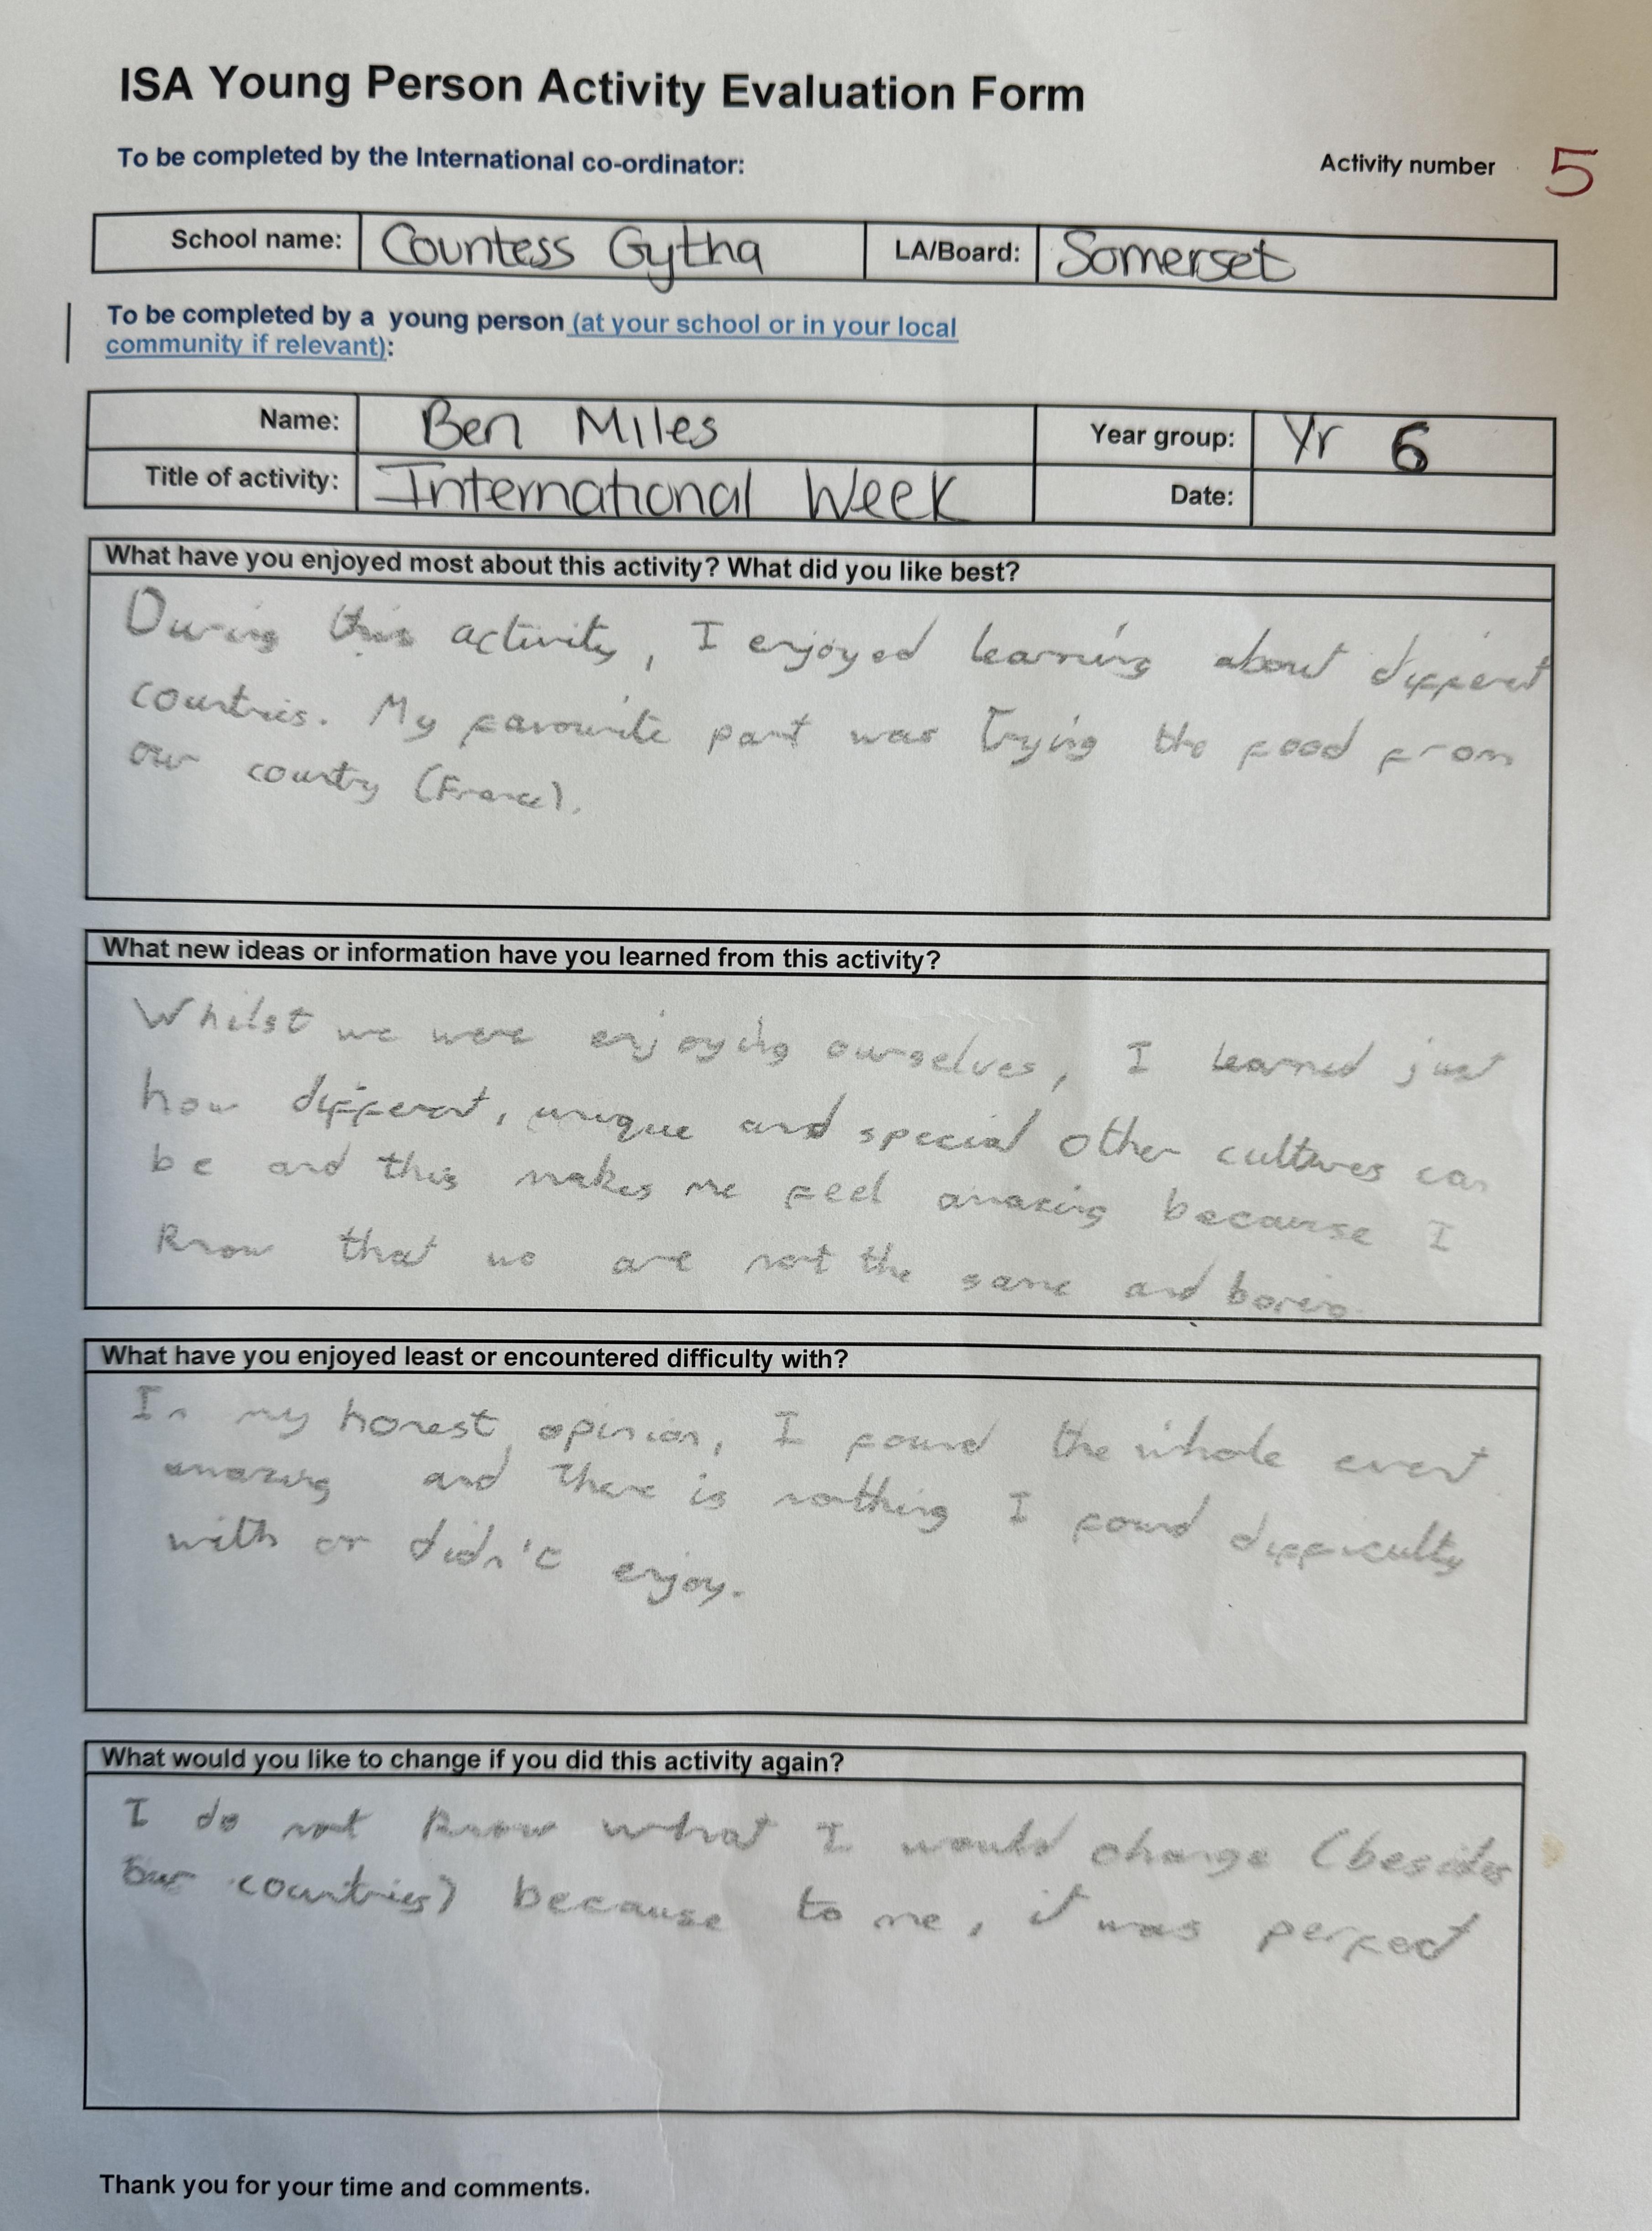 ISA Young Person Activity Evaluation Form
To be completed by the International co-ordinator:
Activity number 5
School name: Countess Gytha LA/Board: Somerset
To be completed by a young person (at your school or in your local
community if relevant):
Name: Ben Miles Year group: Yr 6
Title of activity: International Week Date:
What have you enjoyed most about this activity? What did you like best?
During this activity, I enjoyed learning about different
countries. My favourite part was trying the food from
our country (France).
What new ideas or information have you learned from this activity?
Whilst we were enjoying ourselves, I learned just
how different, unique and special other cultures can
be and this makes me feel amazing because I
know that we are not the same and boring.
What have you enjoyed least or encountered difficulty with?
In my honest opinion, I found the whole event
amazing and there is nothing I found difficulty
with or didn't enjoy.
What would you like to change if you did this activity again?
I do not know what I would change (besides
our countries) because to me, it was perfect
Thank you for your time and comments.